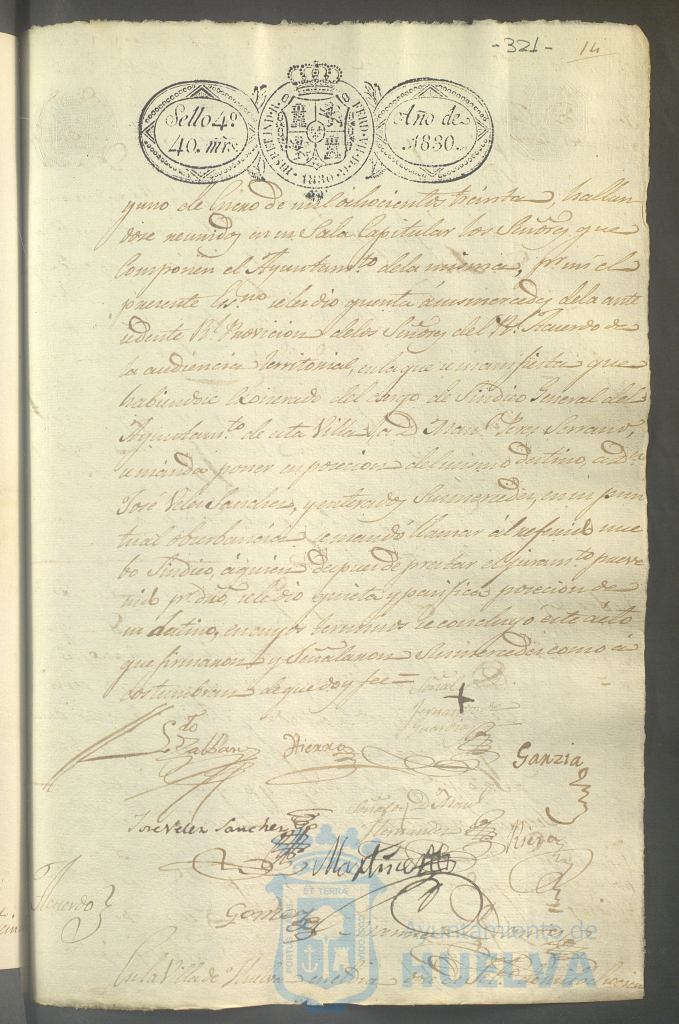 -321- 14
Sello 4º
40. mrs.
HISP. ET IND. R. FERD. VII. D. G. 1830
Año de
1830.
yuno de Enero de mil ochocientos treinta, hallan
dose reunidos en su Sala Capitular los Señores que
componen el Ayuntamto. dela misma, pr. mi el
presente Esno. se les dio quenta á sus mercedes dela ante
cedente Rl. Provicion delos Señores del Rl. Acuerdo de
la audiencia territorial, en la que se manifiesta que
habiendose Exonerado del cargo de Sindico General del
Ayuntamto. de esta Villa, a D. Manl. Serrano,
se manda poner en posecion del mismo destino, a Dn.
José Velez Sanchez, y enterados Sus mercedes, en su pun
tual observancia se mandó llamar al referido nue
bo Sindico, á quien despues de prestar el juramto. preve
nido pr. dro. se le dio quieta y pacifica posecion de
su destino, en cuyos terminos se concluyo este acto
que firmaron y Señalaron Sus mercedes como a
costumbran de que doy fee =
Hierro
Ganzia
Jose Velez Sanchez
Señal de D. Manl.
Hernandez
Martinez
Gomez
Acuerdo
En la Villa de Huelva en
ET TERRÆ
PORTUS MARIS
CUSTODIA
Ayuntamiento de
HUELVA